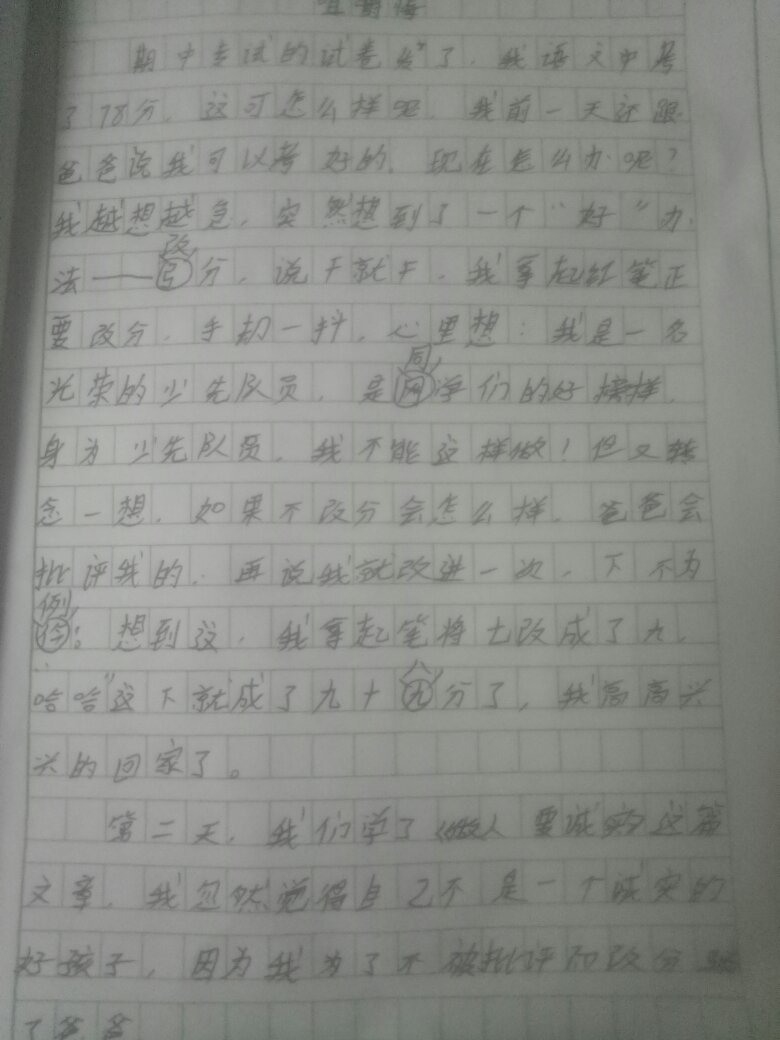 期中考试的试卷发了，我语文中考
了78分，这可怎么样呢，我前一天还跟
爸爸说我可以考好的，现在怎么办呢？
我越想越急，突然想到了一个“好”办
改
法——分，说干就干，我拿起红笔正
要改分，手却一抖，心里想：我是一名
同
光荣的少先队员，是学们的好榜样，
身为少先队员，我不能这样做！但又转
念一想，如果不改分会怎么样，爸爸会
批评我的，再说我就改进一次，下不为
例
。想到这，我拿起笔将七改成了九，
哈哈”这下就成了九十八分了，我高高兴
兴的回家了。
第二天，我们学了《做人要诚实》这篇
文章，我忽然觉得自己不是一个诚实的
好孩子，因为我为了不被批评而改分
了爸爸